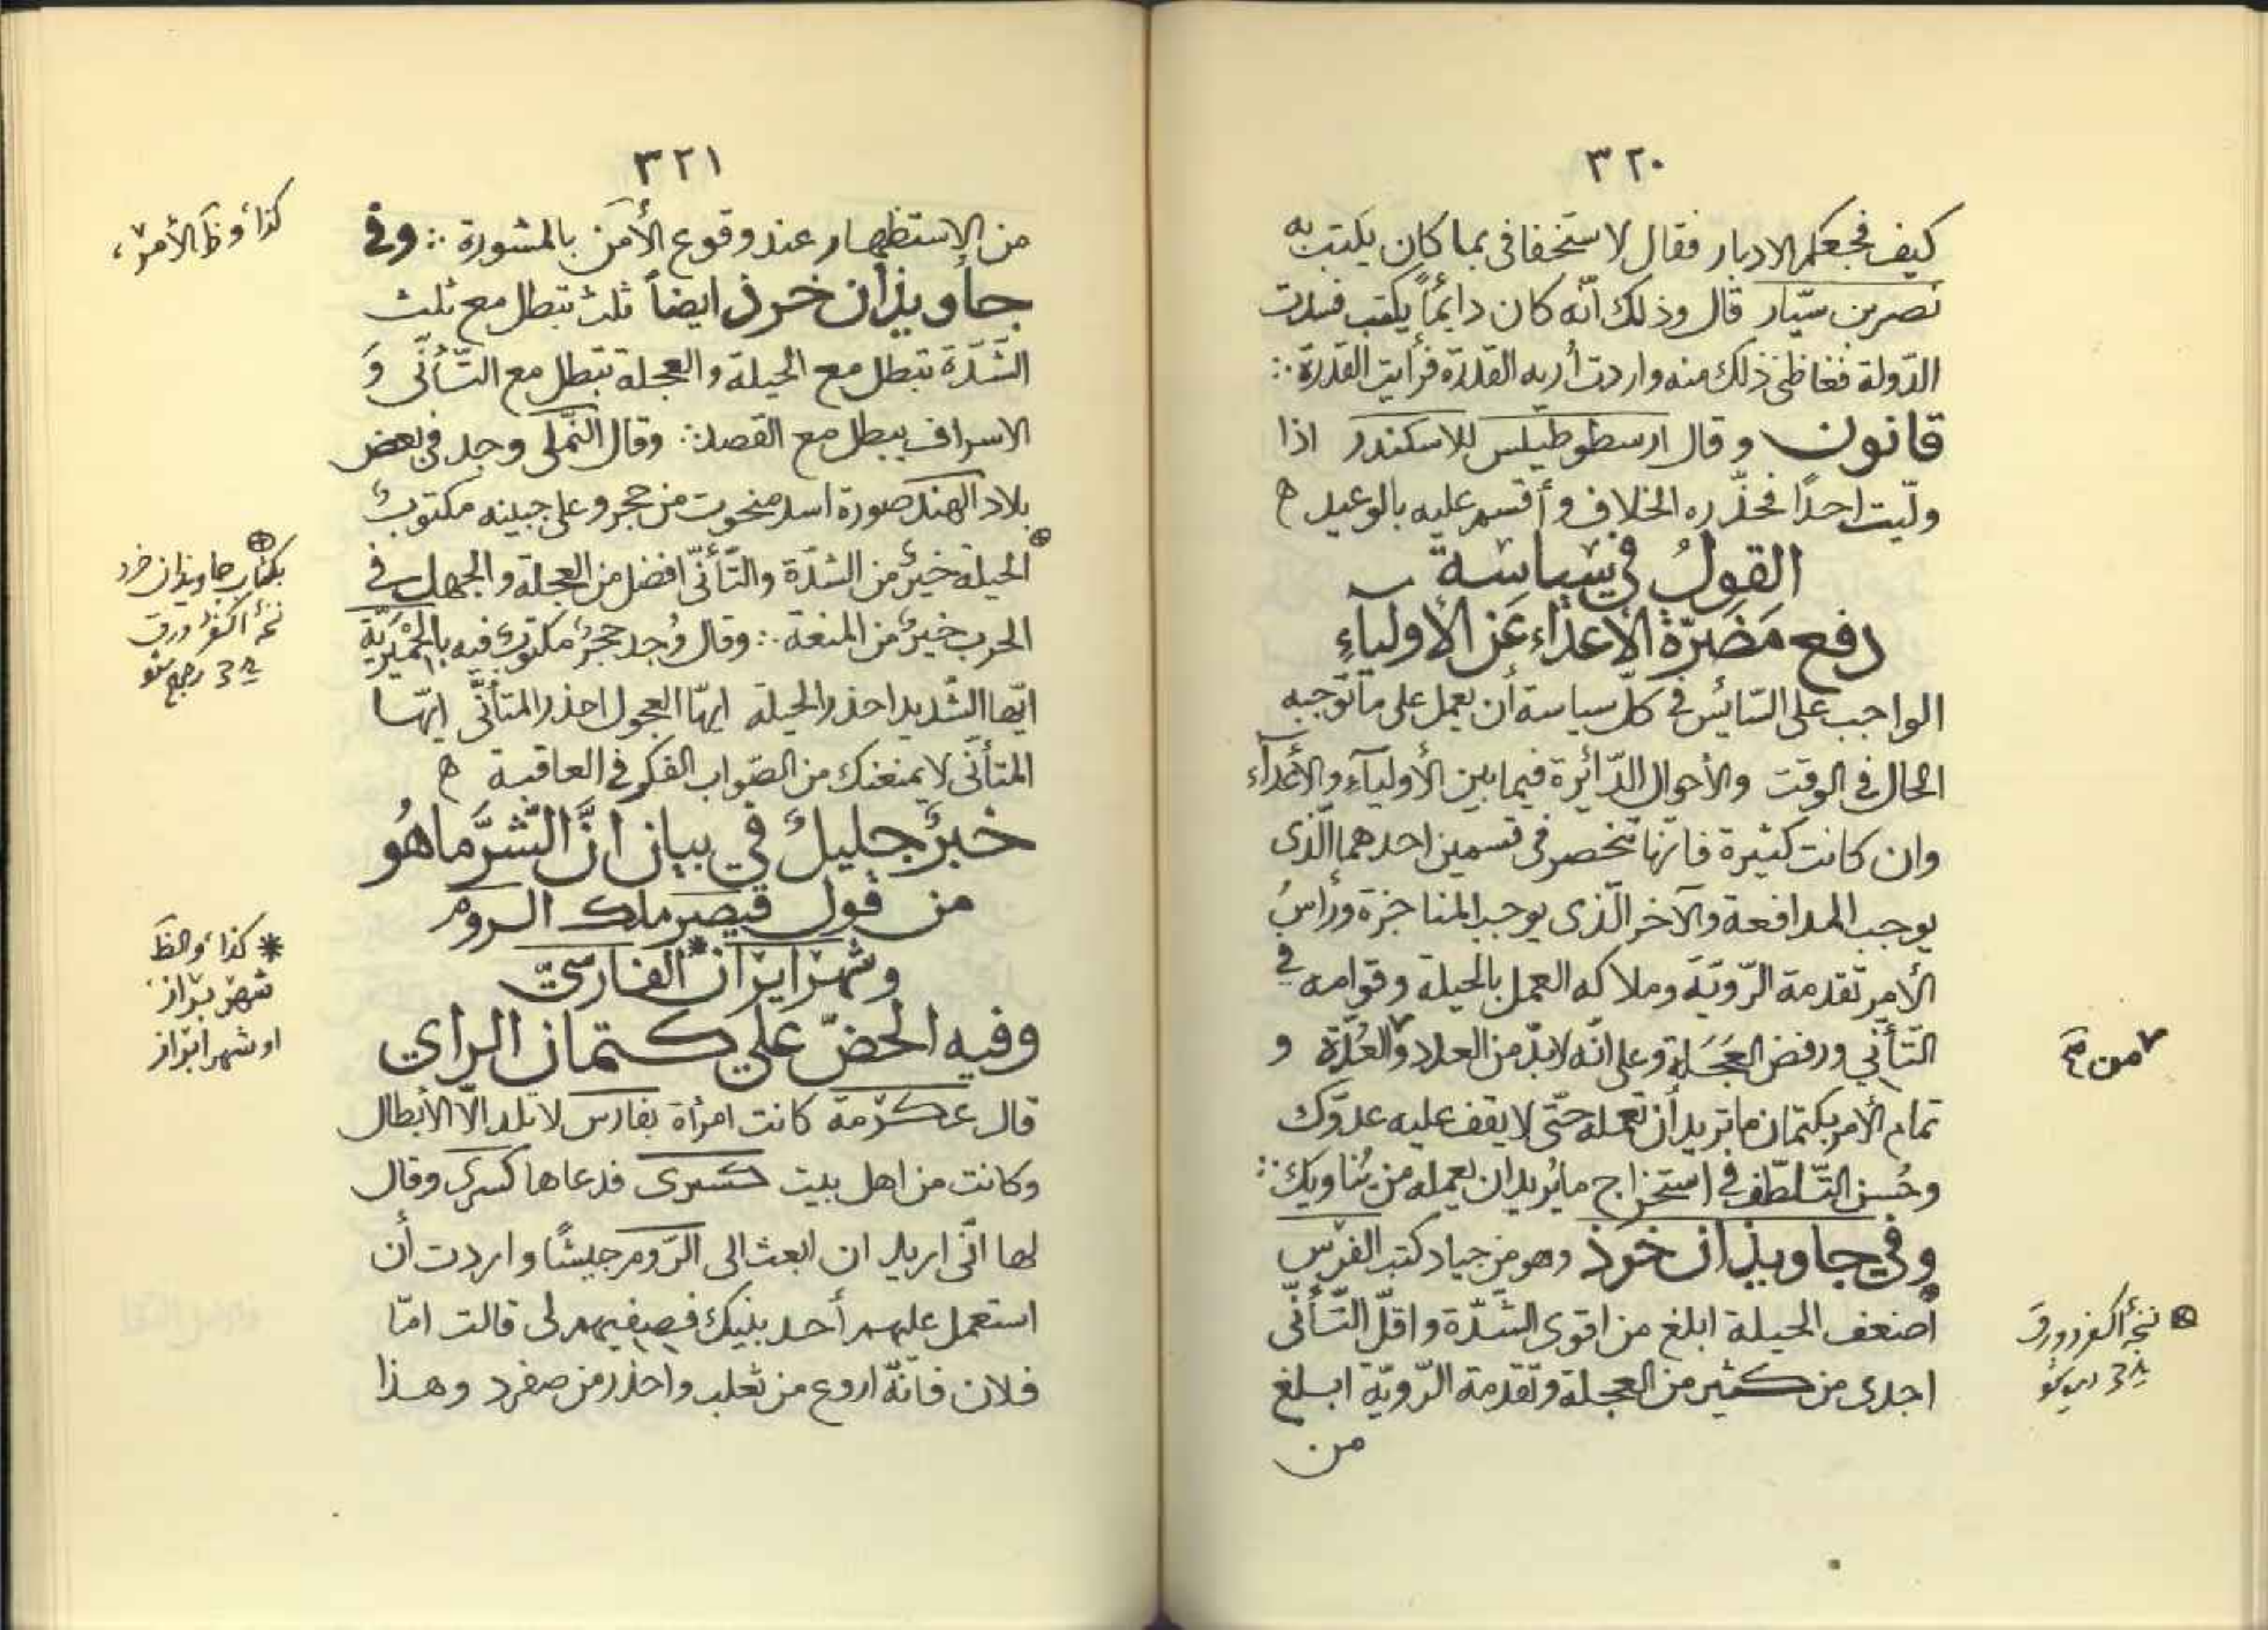 ٣٢٠
كيف فجعكم الادبار فقال لاستخفافى بما كان يكتب به
نصر بن سيّار قال وذلك انّه كان دايماً يكتب فسدت
الدّولة فغاظنى ذلك منه واردت أريه القدرة فرأيت القدرة ∴
قانون وقال ارسطوطيلس للاسكندر اذا
ولّيت احدًا فحذّره الخلاف وأقسم عليه بالوعيد ه
القولُ في سياسة
دفع مَضَرّة الأعداء عَن الأولياءِ
الواجب على السّايُس فى كلّ سياسة أن يعمل على ما توجبه
الحال فى الوقت والأحوال الدّائرة فيما بين الأوليآء والأعدآء
وان كانت كثيرة فانّها تنحصر فى قسمين احدهما الّذى
يوجب المدافعة والآخر الّذى يوجب المناجزة ورأسُ
الأمر تقدمة الرّويّة وملاكه العمل بالحيلة وقوامه في
التّأنّي ورفض العَجَلة وعلى انّه لابدّ من العدد والعُدّة و
تمام الأمر بكتمان ما تريد أن تعمله حتّى لا يقف عليه عدوّك
وحُسن التّلطّف فى استخراج ما يُريد ان يعمله من يُناويك ∴
وفي جاويذان خرَذ وهو من جياد كتب الفرس
اضعف الحيلة ابلغ من اقوى الشّدّة واقلّ التّأنّى
اجدى من كثير من العجلة وتقدمة الرّويّة ابلغ
من
من
نسخهٔ
ورق
٣٢١
من الإستظهار عند وقوع الأمن بالمشورة ∴ وفى
جاويذان خرذ ايضاً ثلث تبطل مع ثلث
الشّدّة تبطل مع الحيلة والعجلة تبطل مع التّأنّى وَ
الاسراف يبطل مع القصد ∴ وقال النّملى وجد فى بعض
بلاد الهند صورة اسد منحوت من حجر وعلى جبينه مكتوبٌ
الحيلة خيرٌ من الشدّة والتّأنّى افضل من العجلة والجهل فى
الحرب خيرٌ من المنعة ∴ وقال وُجد حجرٌ مكتوبٌ فيه بالحِمْيَريّة
ايّها الشّديد احذر الحيلة ايهّا العجول احذر المتأنّى ايهّا
المتأنّى لا يمنعنك من الصّواب الفكر فى العاقبة ه
خبرٌ جليلٌ في بيان انَّ الشّرَّ ما هُو
من قول قيصر ملك الروم
وشهر ايران * الفارسىّ
وفيه الحضّ على كتمان الراي
قال عكرمة كانت امرأة بفارس لا تلد الّا الأبطال
وكانت من اهل بيت كسرى فدعاها كسرى وقال
لها انّى اريد ان ابعث الى الرّوم جيشًا واردت أن
استعمل عليهم أحد بنيك فصفيهم لى قالت امّا
فلان فانّه اروغ من ثعلب واحذر من صفرد وهذا
كذا وظ الأمر
بكتاب جاويدان خرد
نسخهٔ
ورق
رجوع شو
* كذا والظ
شهر براز
او شهر ابراز